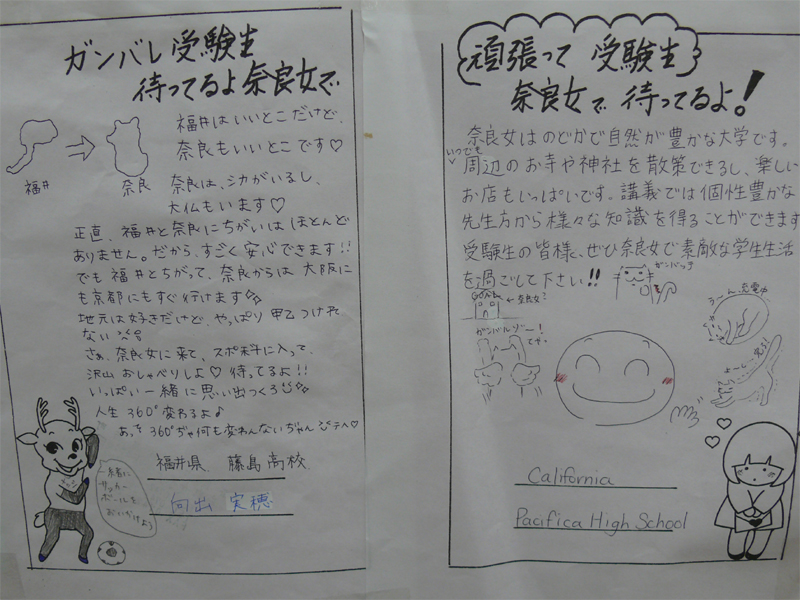 ガンバレ 受験生
待ってるよ奈良女で
福井はいいとこだけど、
奈良もいいとこです♡
福井
奈良
奈良は、シカがいるし、
大仏もいます♡
正直、福井と奈良にちがいはほとんど
ありません。だから、すごく安心できます!!
でも福井とちがって、奈良からは大阪に
も京都にもすぐ行けます
地元は好きだけど、やっぱり甲乙つけれ
ない
さぁ、奈良女に来て、スポ科に入って、
沢山おしゃべりしよ♡待ってるよ!!
いっぱい一緒に思い出つくろ
人生360°変わるよ♪
あっそ360°ぢゃ何も変わんないぢゃん テヘ♡
一緒に
サッカー
ボールを
おいかけよう
福井県 藤島高校
向出 実穂
頑張って 受験生
奈良女で 待ってるよ!
奈良女はのどかで自然が豊かな大学です。
いつでも
周辺のお寺や神社を散策できるし、楽しい
お店もいっぱいです。講義では個性豊かな
先生方から様々な知識を得ることができます
受験生の皆様、ぜひ奈良女で素敵な学生生活
を過ごして下さい!!
ガンバッテ
←奈良女?
ガンバルゾー!
うーん充電中
California
Pacifica High School